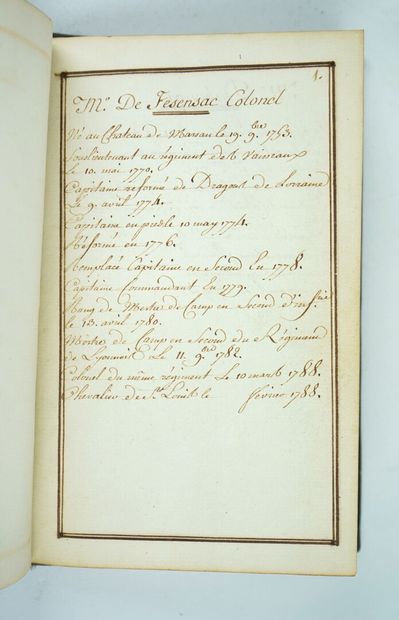 1.
Mr. De Fesensac Colonel
Né au Chateau de Marsan le 19. 9.bre 1753.
Souslieutenant au régiment des Vaisseaux
le 10. mai 1770.
Capitaine reformé de Dragons de Lorraine
Le 9. avril 1774.
Capitaine en pied le 10 may 1774.
Réformé en 1776.
Remplacé Capitaine en Second En 1778.
Capitaine Commandant En 1779.
Rang de Mestre de Camp en Second D'inf.rie
le 13. avril 1780.
Mestre de Camp en Second du Régiment
de Lyonnois Le 11. 9.bre 1782.
Colonel du même régiment Le 10 mars 1788.
Chevalier de St. Louis le février 1788.